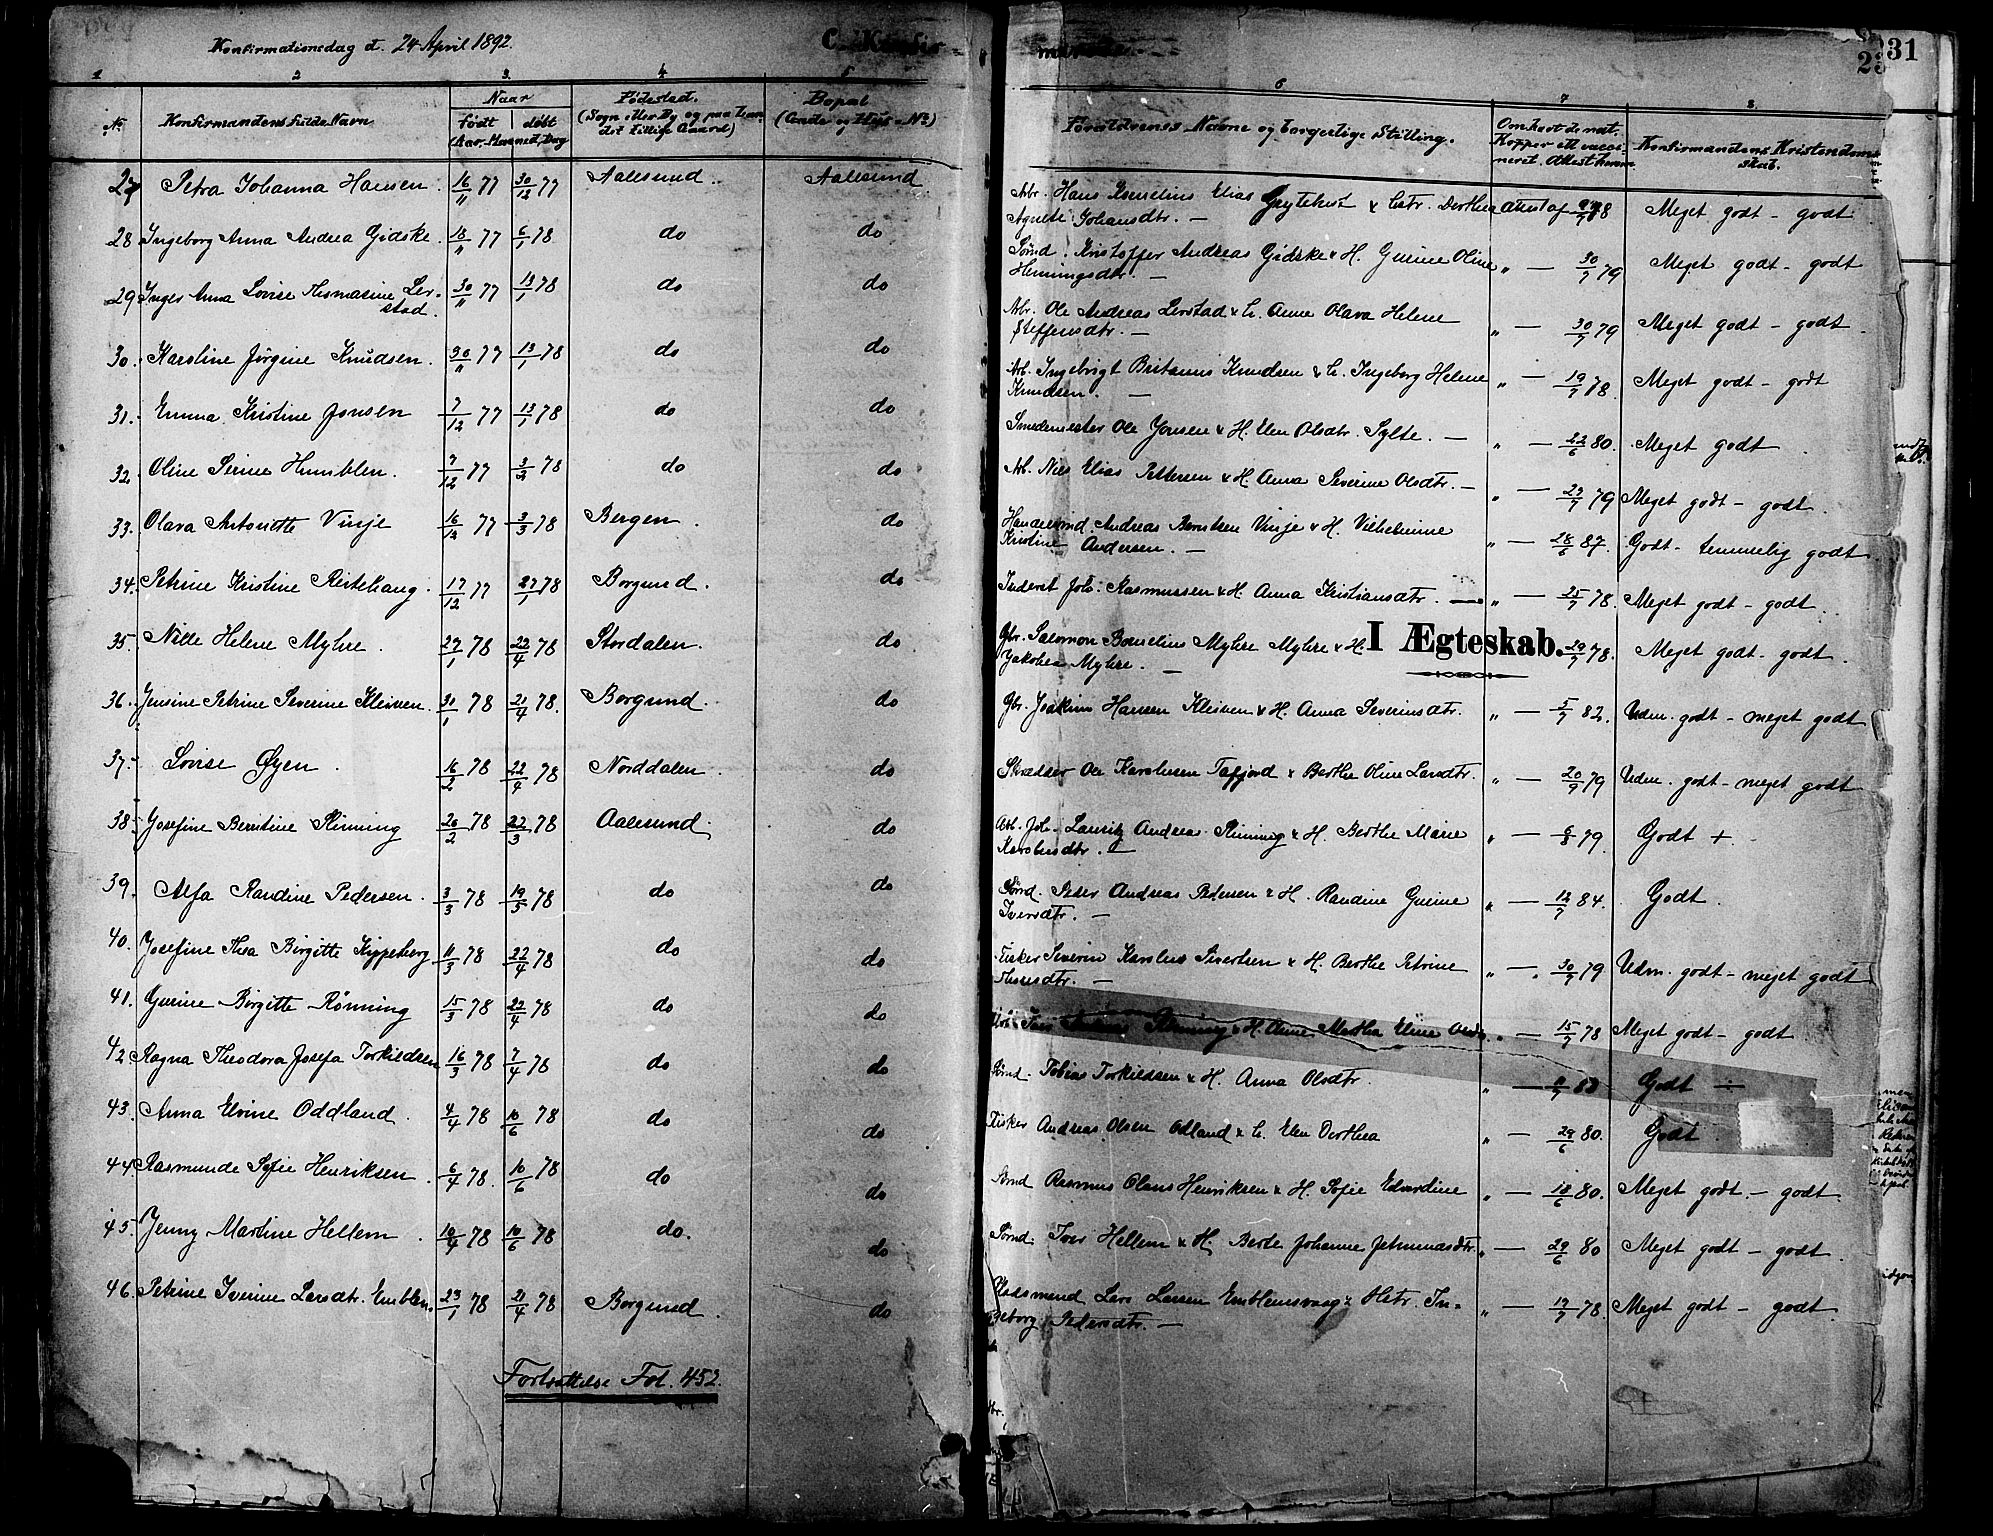 Konfirmationsdag d. 24 April 1892.
C. Konfir=
31
23
1 2 3. 4 5 6 7 8
No. Konfirmandens fulde Navn
Naar
født døbt
(Aar, Maaned, Dag
Fødested.
(Sogn eller By og paa Lan-
det tillige Gaard)
Bopæl
(Gaade og Hus-No)
Forældrenes Navne og borgerlige Stilling.
Om havt de nat.
Kopper ell. vacci-
neret. Attest herom
Konfirmandens Kristendoms-
skab.
27 Petra Johanna Hansen. 16/11 77 30/12 77 Aalesund. Aalesund Arb. Hans Kornelius Elias Grytehest & Hstr. Dorthea Attest af 78 Meget godt - godt
Agnete Johansdtr. —
28 Ingeborg Anna Andrea Gidske. 18/11 77 6/1 78 do do Sømd. Kristoffer Andreas Gidske & H. Gurine Oline " — 30/7 79 Meget godt - godt
Henningsdtr. —
29 Inger Anna Lovise Thomasine Ler-
stad. 30/11 77 13/1 78 do do Arb. Ole Andreas Lerstad & H. Anne Olava Helene
Steffensdtr. — " — 30/7 79 Meget godt - godt.
30. Karoline Jørgine Knudsen. 30/11 77 13/1 78 do do Arb. Ingebrigt Britanus Knudsen & H. Ingeborg Helene
Knudsen. — " — 19/7 78. Meget godt - godt
31. Emma Kristine Jonsen 7/12 77 13/1 78 do do Smedemester Ole Jonsen & H. Elen Olsdtr. Sylte. — " — 22/6 80. Meget godt.
32. Oline Serine Humblen. 7/12 77 3/2 78 do do Arb. Nils Elias Pettersen & H. Anna Severine Olsdtr. — " — 23/7 79 Meget godt - godt.
33. Olava Antonette Vinje 16/12 77 3/3 78 Bergen. do Handelsmd. Andreas Berntsen Vinje & H. Vilhelmine
Kristine Andersen. — " — 28/6 87. Godt - temmelig godt
34. Petrine Kristine Ristehaug. 17/12 77 27/1 78 Borgund. do Inderst Joh. Rasmussen & H. Anna Kristiansdtr. — " — 25/7 78. Meget godt - godt.
35. Nille Helene Myhre. 27/1 78 22/4 78 Stordalen. do Gbr. Salomon Bornelius Myhre Myhre & H. I Ægteskab. 29/7 78. Meget godt - godt.
Jakobea Myhre. —
36. Jensine Petrine Severine Kleiven. 31/1 78 21/4 78. Borgund. do Gbr. Joakim Hansen Kleiven & H. Anna Severinsdtr. " — 5/7 82. Udm. godt - meget godt
37. Lovise Øyen. 16/2 78 22/4 78 Norddalen. do Skrædder Ole Karolusen Tafjord & Berthe Oline Larsdtr. " — 20/9 79 Udm. godt - meget godt
38. Josefine Berntine Slinning 26/2 78 22/3 78 Aalesund. do Arb. Joh. Lauritz Andreas Slinning & H. Berthe Marie
Karolusdtr. — " — 6/8 79. Godt +.
39. Alfa Randine Pedersen. 3/3 78 19/5 78 do do Sømd. Peter Andreas Pedersen & H. Randine Gurine
Iversdtr. — " — 12/7 84. Godt.
40. Josefine Thea Birgitte Kipperberg. 11/3 78 22/4 78 do do Fisker Severin Karolus Sivertsen & H. Berthe Petrine
— " — 30/7 79 Udm. godt - meget godt
41. Gurine Birgitte Rønning 15/3 78 22/4 78 do do & H. Anne Martha Eline " — 15/7 78 Meget godt - godt
42. Ragna Theodora Josefa Torkildsen 16/3 78 7/4 78 do do Sømd. Tobias Torkildsen & H. Anna Olsdtr. " — Godt ÷
43. Anna Elvine Oddland. 4/4 78 10/6 78 do do Fisker Andreas Olsen Odland & H. Elen Dorthea " — 29/6 80. Godt.
44. Rasmunde Sofie Henriksen. 6/4 78. 10/6 78 do do Sømd Rasmus Olaus Henriksen & H. Sofie Edvardine " — 18/6 80. Meget godt. - godt.
45. Jenny Martine Hellem. 10/4 78 10/6 78 do. do Sømd. Iver Hellem & H. Berte Johanne " — 29/6 80 Meget godt - godt.
46. Petrine Iverine Larsdtr. Emblem. 23/1 78 21/4 78 Borgund. do Pladsmand Lars Larsen Emblemsvaag & Hstr. In-
geborg Pedersdtr. — " — 19/7 78. Meget godt - godt
Fortsættelse Fol. 452.